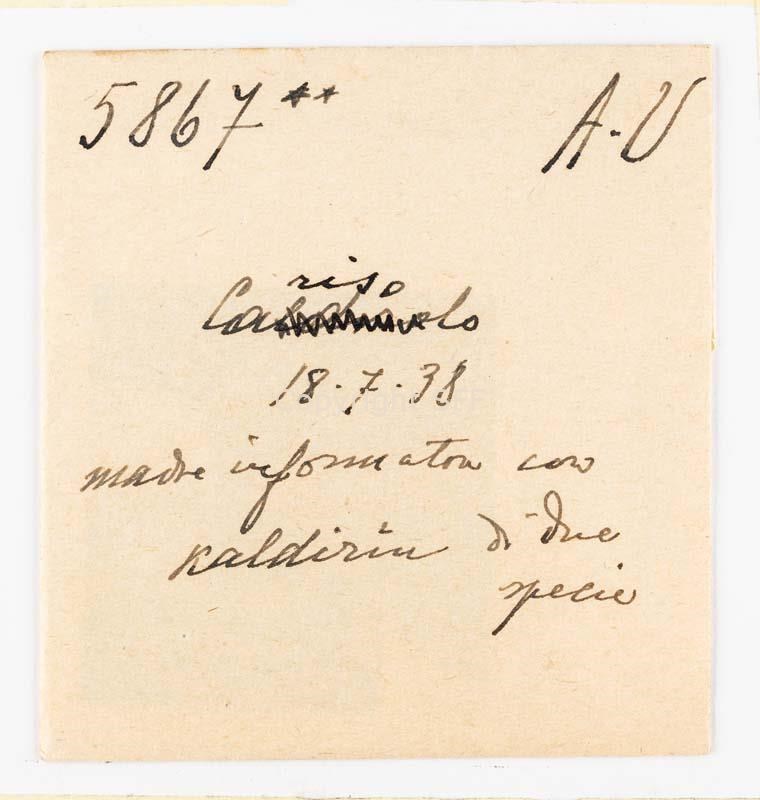 5867** A-V
riso
Ca lo
18·7·38
madre informatore con
kaldirin di due
specie